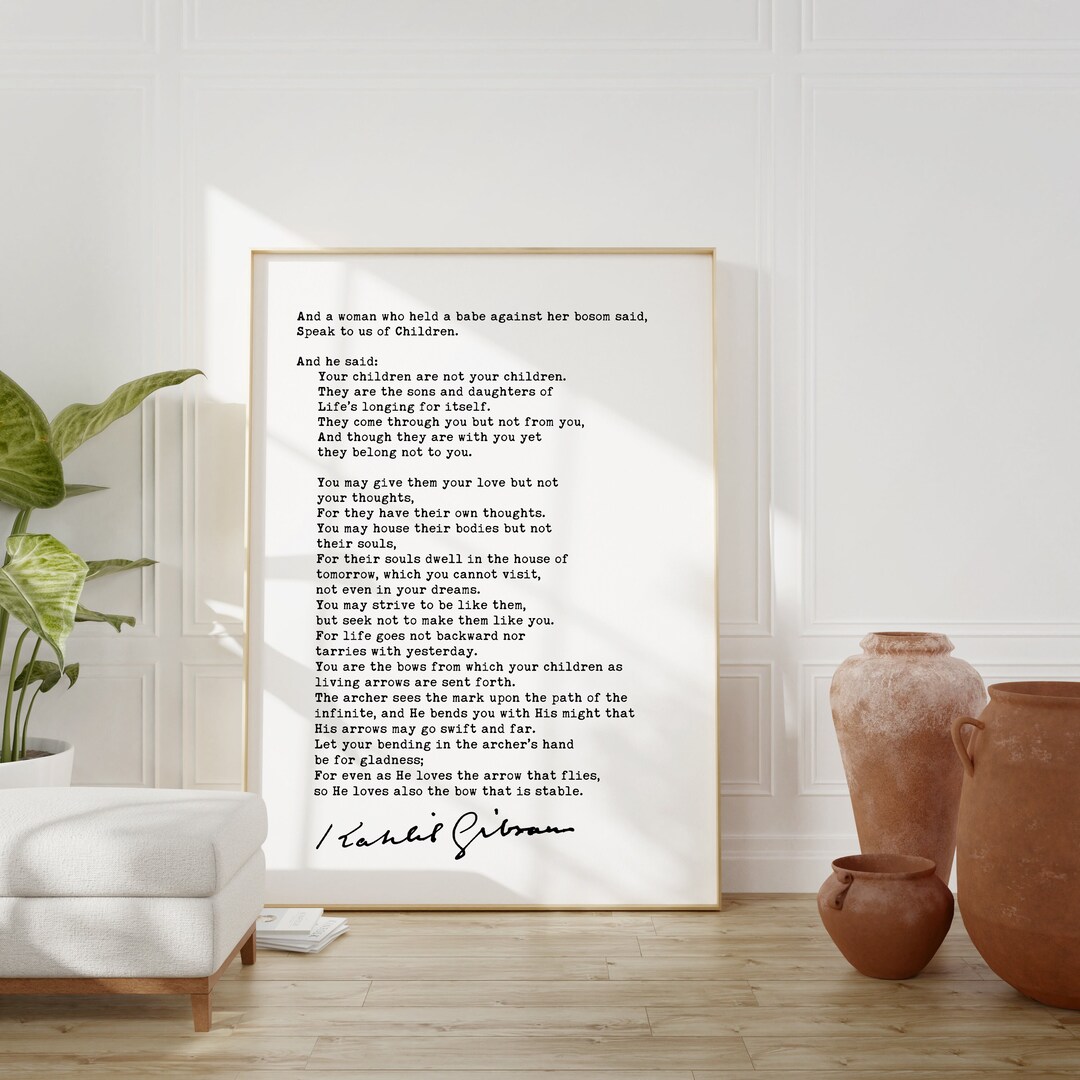 And a woman who held a babe against her bosom said,
Speak to us of Children.
And he said:
Your children are not your children.
They are the sons and daughters of
Life's longing for itself.
They come through you but not from you,
And though they are with you yet
they belong not to you.
You may give them your love but not
your thoughts,
For they have their own thoughts.
You may house their bodies but not
their souls,
For their souls dwell in the house of
tomorrow, which you cannot visit,
not even in your dreams.
You may strive to be like them,
but seek not to make them like you.
For life goes not backward nor
tarries with yesterday.
You are the bows from which your children as
living arrows are sent forth.
The archer sees the mark upon the path of the
infinite, and He bends you with His might that
His arrows may go swift and far.
Let your bending in the archer's hand
be for gladness;
For even as He loves the arrow that flies,
so He loves also the bow that is stable.
Kahlil Gibran